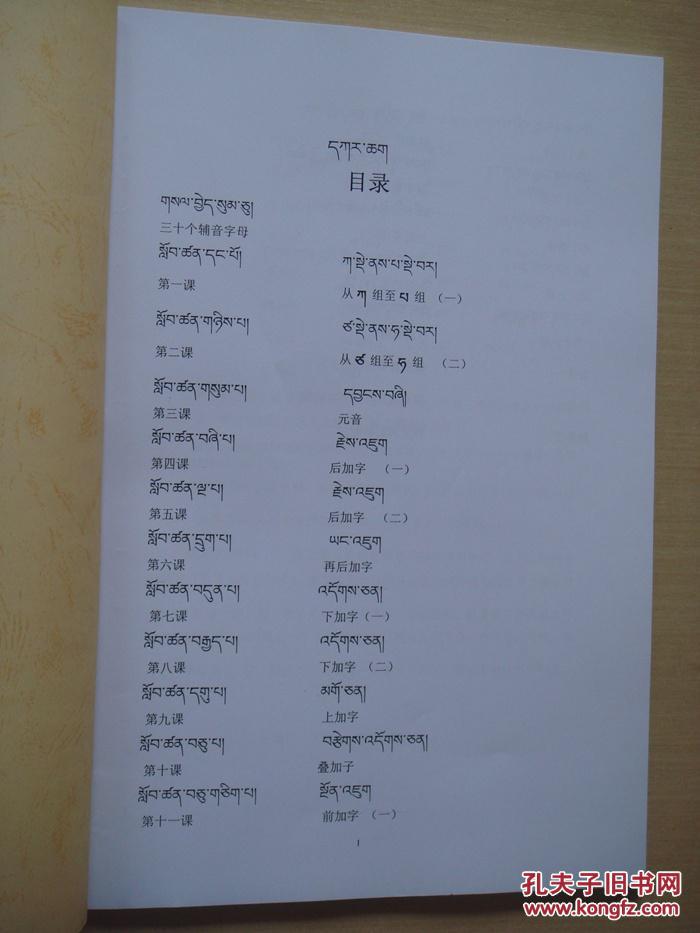 དཀར་ཆག
目录
གསལ་བྱེད་སུམ་ཅུ།
三十个辅音字母
སློབ་ཚན་དང་པོ། ཀ་སྡེ་ནས་པ་སྡེ་བར།
第一课 从 ཀ 组至 པ 组 （一）
སློབ་ཚན་གཉིས་པ། ཙ་སྡེ་ནས་ཧ་སྡེ་བར།
第二课 从 ཙ 组至 ཧ 组 （二）
སློབ་ཚན་གསུམ་པ། དབྱངས་བཞི།
第三课 元音
སློབ་ཚན་བཞི་པ། རྗེས་འཇུག
第四课 后加字 （一）
སློབ་ཚན་ལྔ་པ། རྗེས་འཇུག
第五课 后加字 （二）
སློབ་ཚན་དྲུག་པ། ཡང་འཇུག
第六课 再后加字
སློབ་ཚན་བདུན་པ། འདོགས་ཅན།
第七课 下加字（一）
སློབ་ཚན་བརྒྱད་པ། འདོགས་ཅན།
第八课 下加字（二）
སློབ་ཚན་དགུ་པ། མགོ་ཅན།
第九课 上加字
སློབ་ཚན་བཅུ་པ། བརྩེགས་འདོགས་ཅན།
第十课 叠加子
སློབ་ཚན་བཅུ་གཅིག་པ། སྔོན་འཇུག
第十一课 前加字（一）
1
孔夫子旧书网
www.kongfz.com